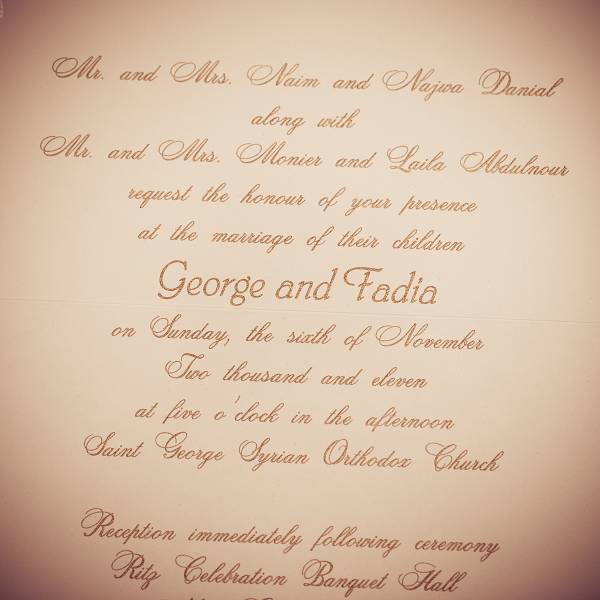 Mr. and Mrs. Naim and Najwa Danial
along with
Mr. and Mrs. Monier and Laila Abdulnour
request the honour of your presence
at the marriage of their children
George and Fadia
on Sunday, the sixth of November
Two thousand and eleven
at five o'clock in the afternoon
Saint George Syrian Orthodox Church
Reception immediately following ceremony
Ritz Celebration Banquet Hall